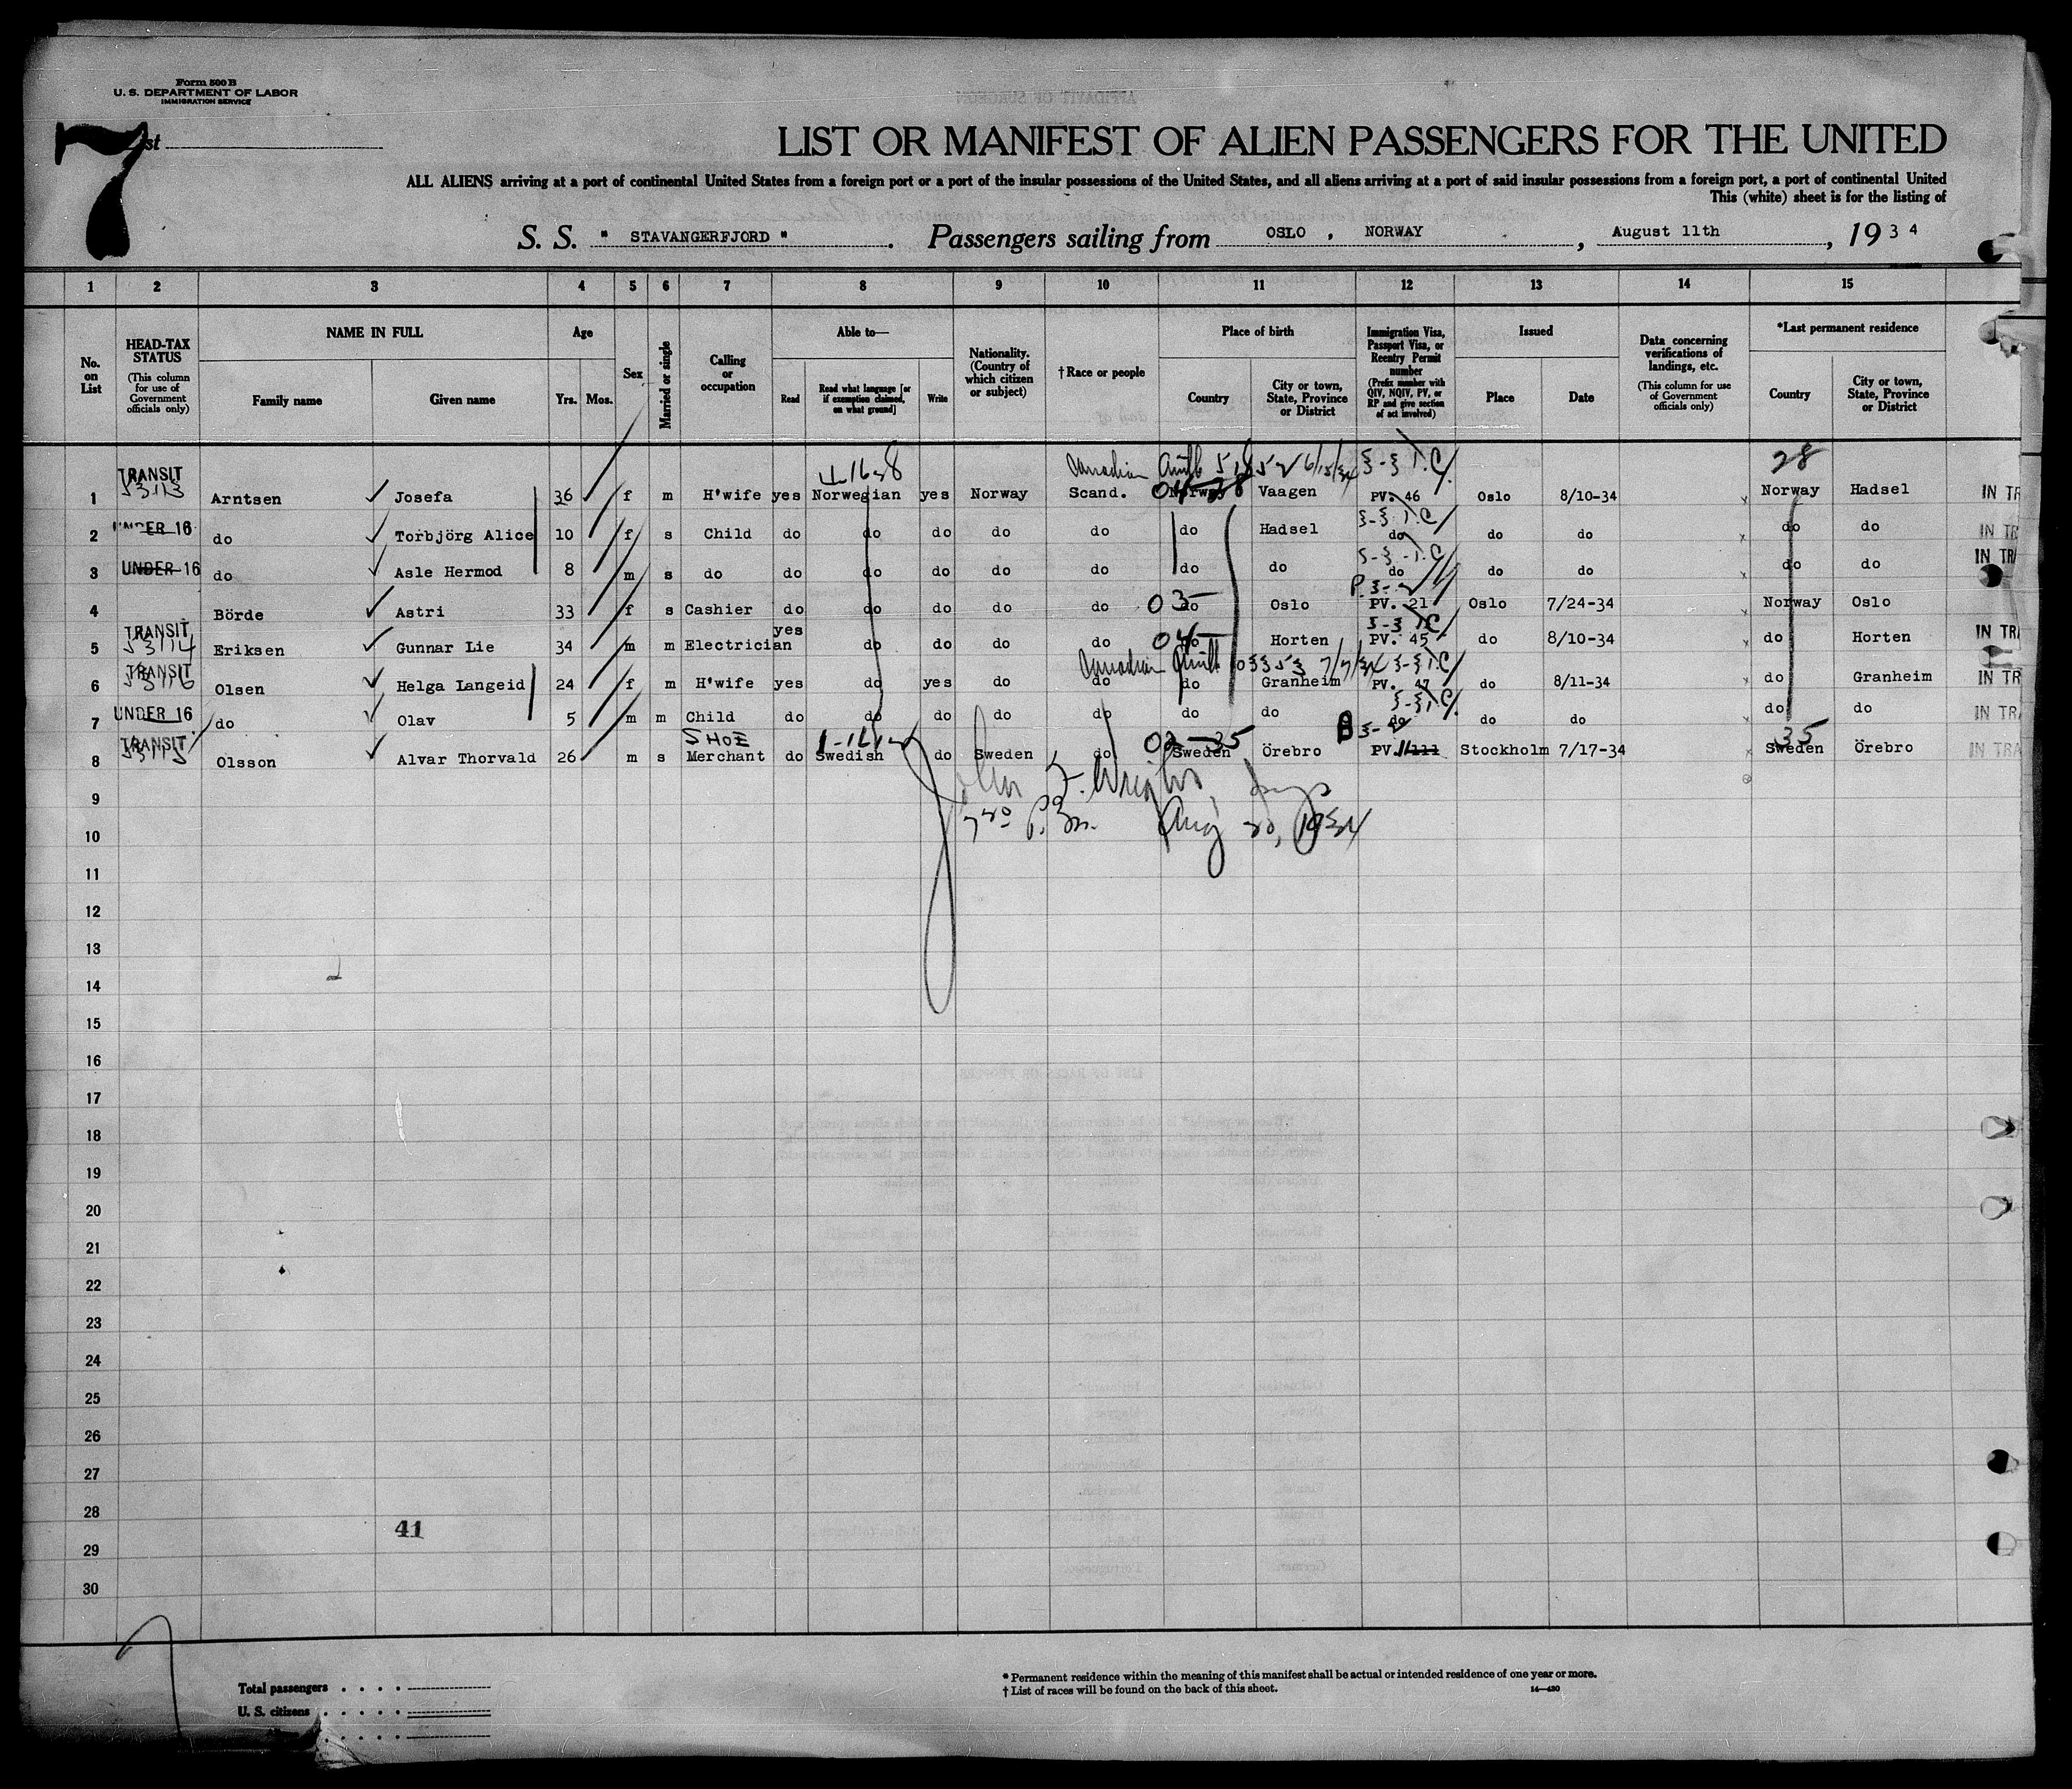 Form 500 B
U. S. DEPARTMENT OF LABOR
IMMIGRATION SERVICE
7
List
LIST OR MANIFEST OF ALIEN PASSENGERS FOR THE UNITED
ALL ALIENS arriving at a port of continental United States from a foreign port or a port of the insular possessions of the United States, and all aliens arriving at a port of said insular possessions from a foreign port, a port of continental United
This (white) sheet is for the listing of
S. S. " STAVANGERFJORD " . Passengers sailing from OSLO , NORWAY , August 11th , 19 3 4
1 2 3 4 5 6 7 8 9 10 11 12 13 14 15
No. on List
HEAD-TAX STATUS (This column for use of Government officials only)
NAME IN FULL
Family name
Given name
Age
Yrs. Mos.
Sex
Married or single
Calling or occupation
Able to—
Read
Read what language [or if exemption claimed, on what ground]
Write
Nationality. (Country of which citizen or subject)
† Race or people
Place of birth
Country
City or town, State, Province or District
Immigration Visa, Passport Visa, or Reentry Permit number (Prefix number with QIV, NQIV, PV, or RP and give section of act involved)
Issued
Place
Date
Data concerning verifications of landings, etc. (This column for use of Government officials only)
*Last permanent residence
Country
City or town, State, Province or District
Canadian 6/15/34 3-3 T.C. 28
1 TRANSIT 53113 Arntsen Josefa 36 f m H'wife yes Norwegian yes Norway Scand. Norway Vaagen PV. 46 Oslo 8/10-34 Norway Hadsel IN TR
2 UNDER 16 do Torbjörg Alice 10 f s Child do do do do do do Hadsel 3-3 T.C. do do do do do IN TR
3 UNDER 16 do Asle Hermod 8 m s do do do do do do do do 3-3 T.C. do do do do do IN TRA
4 Börde Astri 33 f s Cashier do do do do do 03 do Oslo P. 3-2 PV. 21 Oslo 7/24-34 Norway Oslo
5 TRANSIT 53114 Eriksen Gunnar Lie 34 m m Electrician yes do do do do 04 do Horten 3-3 T.C. PV. 45 do 8/10-34 do Horten IN TRA
Canadian 7/7/34 3-3 T.C.
6 TRANSIT 53116 Olsen Helga Langeid 24 f m H'wife yes do yes do do do Granheim PV. 47 do 8/11-34 do Granheim IN TR
7 UNDER 16 do Olav 5 m m Child do do do do do do do 3-3 T.C. do do do do do IN TRA
8 TRANSIT 53115 Olsson Alvar Thorvald 26 m s SHOE Merchant do Swedish do Sweden do 02-35 Sweden Örebro PV. Stockholm 7/17-34 35 Sweden Örebro IN TRA
John F. Wright,
7 30 P. M. Aug 20, 1934
9
10
11
12
13
14
15
16
17
18
19
20
21
22
23
24
25
26
27
28
41
29
30
Total passengers
U. S. citizens
* Permanent residence within the meaning of this manifest shall be actual or intended residence of one year or more.
† List of races will be found on the back of this sheet.
14—430